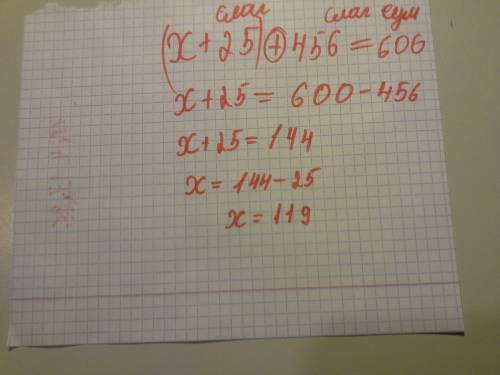 слаг слаг сум
(x + 25) + 456 = 606
x + 25 = 600 - 456
x + 25 = 144
x = 144 - 25
x = 119